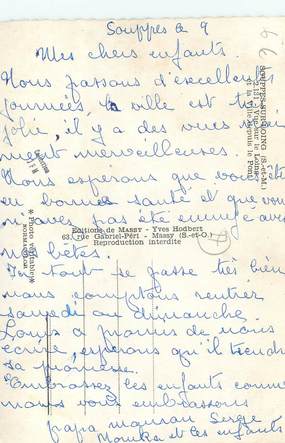 Souppes le 9
Mes chers enfants
Nous passons d'excellentes
journées la ville est très
jolie, il y a des vues
ment merveilleuses.
Nous espérons que vous êtes
en bonne santé et que vous
n'avez pas été ennuyé avec
nos bêtes.
Ici tout se passe très bien
nous comptons rentrer
samedi ou dimanche.
Louis a promis de nous
écrire, espérons qu'il tiendra
sa promesse.
Embrassez les enfants comme
nous vous embrassons
papa maman Serge
Monika et les enfants
Editions de MASSY - Yves Hodbert
63, rue Gabriel-Péri - Massy (S.-et-O.)
Reproduction interdite
SOUPPES-SUR-LOING (S.-et-M.)
et la Ville depuis le Pont
* Photo véritable *